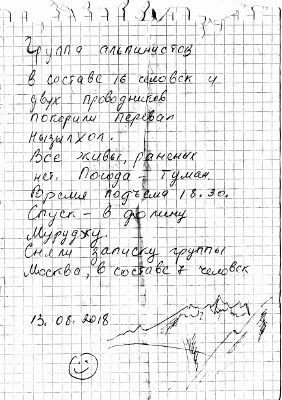 Группа альпинистов
в составе 16 человек и
двух проводников
покорили перевал
Кызылкол.
Все живы, раненых
нет. Погода - туман
Время подъема 18.30.
Спуск - в долину
Муруджу.
Сняли записку группы
Москва, в составе 7 человек
13.08.2018